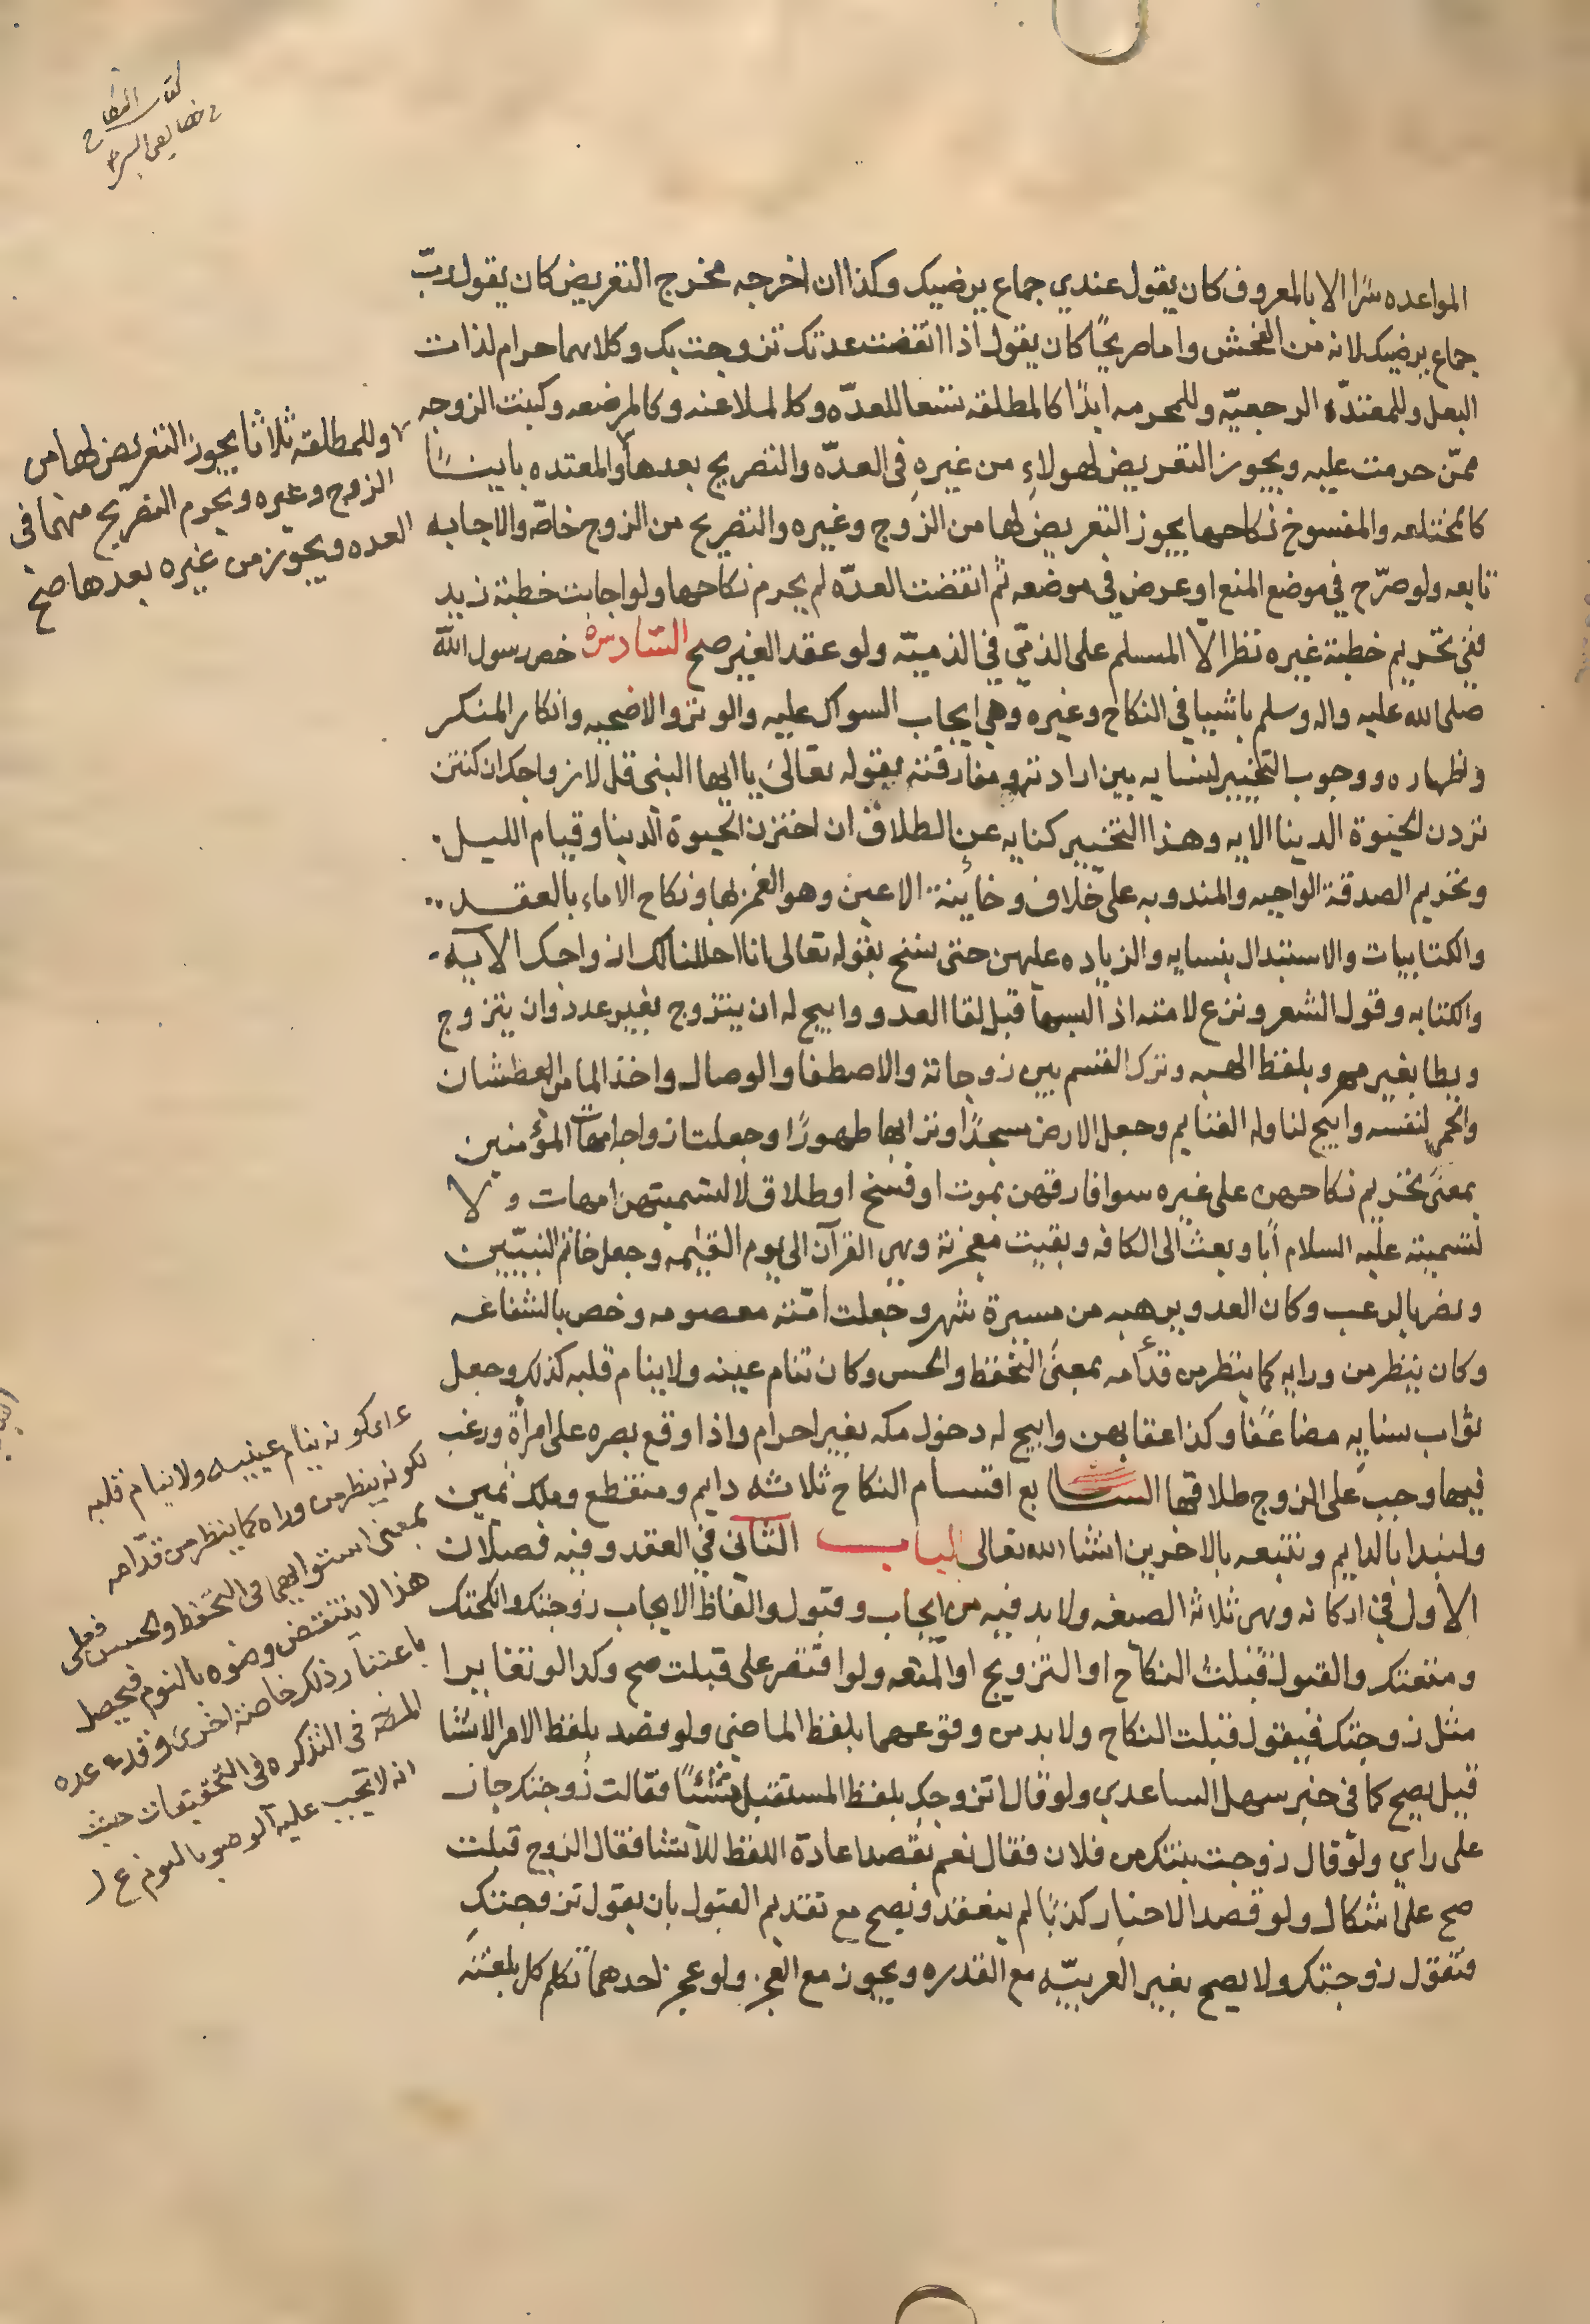 كتاب النكاح
المواعده سرّا الا بالمعروف كان يقول عندي جماع يرضيك وكذا ان اخرجه مخرج التعريض كان يقول ربّ
جماع يرضيك لانه من الفحش واما صريحًا كان يقول اذا انقضت عدتك تزوجت بك وكلاهما حرام لذات
البعل وللمعتدّه الرجعيّه وللمحرمه ابدًا كالمطلقه تسعا للعدّه وكالملاعنه وكالمرضعه وكبنت الزوجه
ممّن حرمت عليه ويجوز التعريض لهولاءِ من غيرهِ في العدّه والتصريح بعدها والمعتده باينًا
كالمختلعه والمفسوخ نكاحها يجوز التعريض لها من الزوج وغيره والتصريح من الزوج خاصّه والاجابه
تابعه ولو صرّح في موضع المنع او عرض في موضعه ثم انقضت العدّه لم يحرم نكاحها ولو اجابت خطبة زيد
ففي تحريم خطبة غيره نظر الّا المسلم على الذمّي في الذميّه ولو عقد الغير صح السّادس خص رسول الله
صلى الله عليه واله وسلم باشيا في النكاح وغيره وهي ايجاب السواك عليه والوتر والاضحيه وانكار المنكر
واظهاره ووجوب التخيير لنسايه بين ارادته ومفارقته بقوله تعالىٰ يا ايها النبى قل لازواجك ان كنتن
تردن الحيوة الدنيا الايه وهذا التخيير كنايه عن الطلاق ان اخترن الحيوة الدنيا وقيام الليل
وتحريم الصدقة الواجبه والمندوبه على خلاف وخاينة الاعين وهو الغمز بها ونكاح الاماء بالعقد
والكتابيات والاستبدال بنسايه والزياده عليهن حتى نسخ بقوله تعالى انا احللنا لك ازواجك الآيه
والكتابه وقول الشعر ونزع لامته اذا البسها قبل لقا العدو وابيح له ان يتزوج بغير عدد وان يتزوج
ويطا بغير مهر وبلفظ الهبه وترك القسم بين زوجاته والاصطفا والوصال واخذ الما من العطشان
والحمى لنفسه وابيح لنا وله الغنايم وجعل الارض مسجدًا وترابها طهورًا وجعلت ازواجه امهات المؤمنين
بمعنىٰ تحريم نكاحهن على غيره سوا فارقهن بموت او فسخ او طلاق لا لتسميتهن امهات ولا
لتسميته عليه السلام ابًا وبعث الى الكافه وبقيت معجزته وهي القرآن الى يوم القيٰمه وجعل خاتم النبيّين
ونصر بالرعب وكان العدو يرهبه من مسيرة شهر وجعلت امّته معصومه وخص بالشفاعه
وكان ينظر من ورايه كما ينظر من قدّامه بمعنىٰ التحفظ والحس وكان تنام عينه ولا ينام قلبه كذلك وجعل
ثواب نسايه مضاعَفًا وكذا عقابهن وابيح له دخول مكه بغير احرام واذا وقع بصره على امراة ورغب
فيها وجب على الزوج طلاقها السابع اقسام النكاح ثلاثه دايم ومنقطع وملك يمين
ولنبدا بالدايم ونتبعه بالاخرين انشا الله تعالى الباب الثاني في العقد وفيه فصلان
الاول في اركانه وهي ثلاثة الصيغه ولا بد فيه من ايجاب وقبول والفاظ الايجاب زوجتك وانكحتك
ومتعتك والقبول قبلت النكاح او التزويج او المتعه ولو اقتصر على قبلت صح وكذا لو تغايرا
مثل زوجتك فيقول قبلت النكاح ولا بد من وقوعهما بلفظ الماضي ولو قصد بلفظ الامر الانشا
قيل يصح كما في خبر سهل الساعدي ولو قال اتزوجك بلفظ المستقبل منشئًا فقالت زوجتك جاز
على راي ولو قال زوجت بنتك من فلان فقال نعم بقصد اعادة اللفظ للانشا فقال الزوج قبلت
صح على اشكال ولو قصد الاخبار كذبًا لم ينعقد ويصح مع تقديم القبول بان يقول تزوجتكِ
فتقول زوجتك ولا يصح بغير العربيّه مع القدره ويجوز مع العجز ولو عجز احدهما تكلم كل بلغته
وللمطلقه ثلاثا يجوز التعريض لها من
الزوج وغيره ويحرم التصريح منهما في
العده ويجوز من غيره بعدها صح
كونه ينام عينيه ولا ينام قلبه
لكونه ينظر من وراه كما ينظر من قدّامه
بمعنى استوايهما في التحفظ والحس فعلى
هذا لا ينتقض وضوه بالنوم فيحصل
باعتبار ذلك خاصة اخرى وقد عده
المصنّف في التذكره في التحقيقات حيث
انه لا يجب عليه الوضو بالنوم ع ل